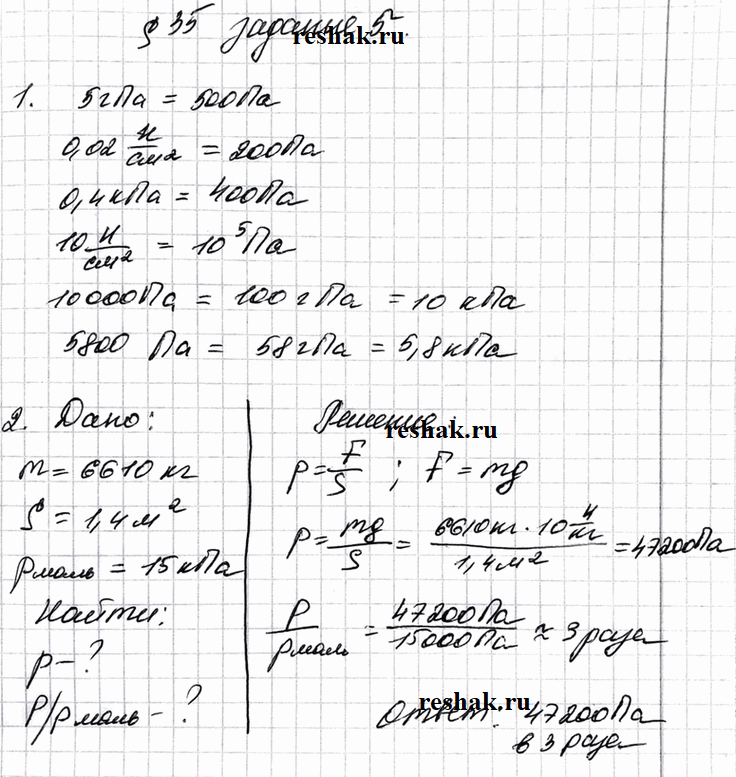 § 35 задание 5
reshak.ru
1. 5гПа = 500Па
0,02 Н/см² = 200Па
0,4кПа = 400Па
10 Н/см² = 10⁵Па
10000Па = 100 гПа = 10 кПа
5800 Па = 58гПа = 5,8кПа
2. Дано:
m = 6610 кг
S = 1,4 м²
pмаль = 15 кПа
Найти:
p - ?
P/pмаль - ?
Решение:
reshak.ru
P = F/S ; F = mg
P = mg/S = 6610кг · 10 Н/кг / 1,4м² = 47200Па
P/pмаль = 47200Па/15000Па ≈ 3 раза
reshak.ru
Ответ: 47200Па
в 3 раза